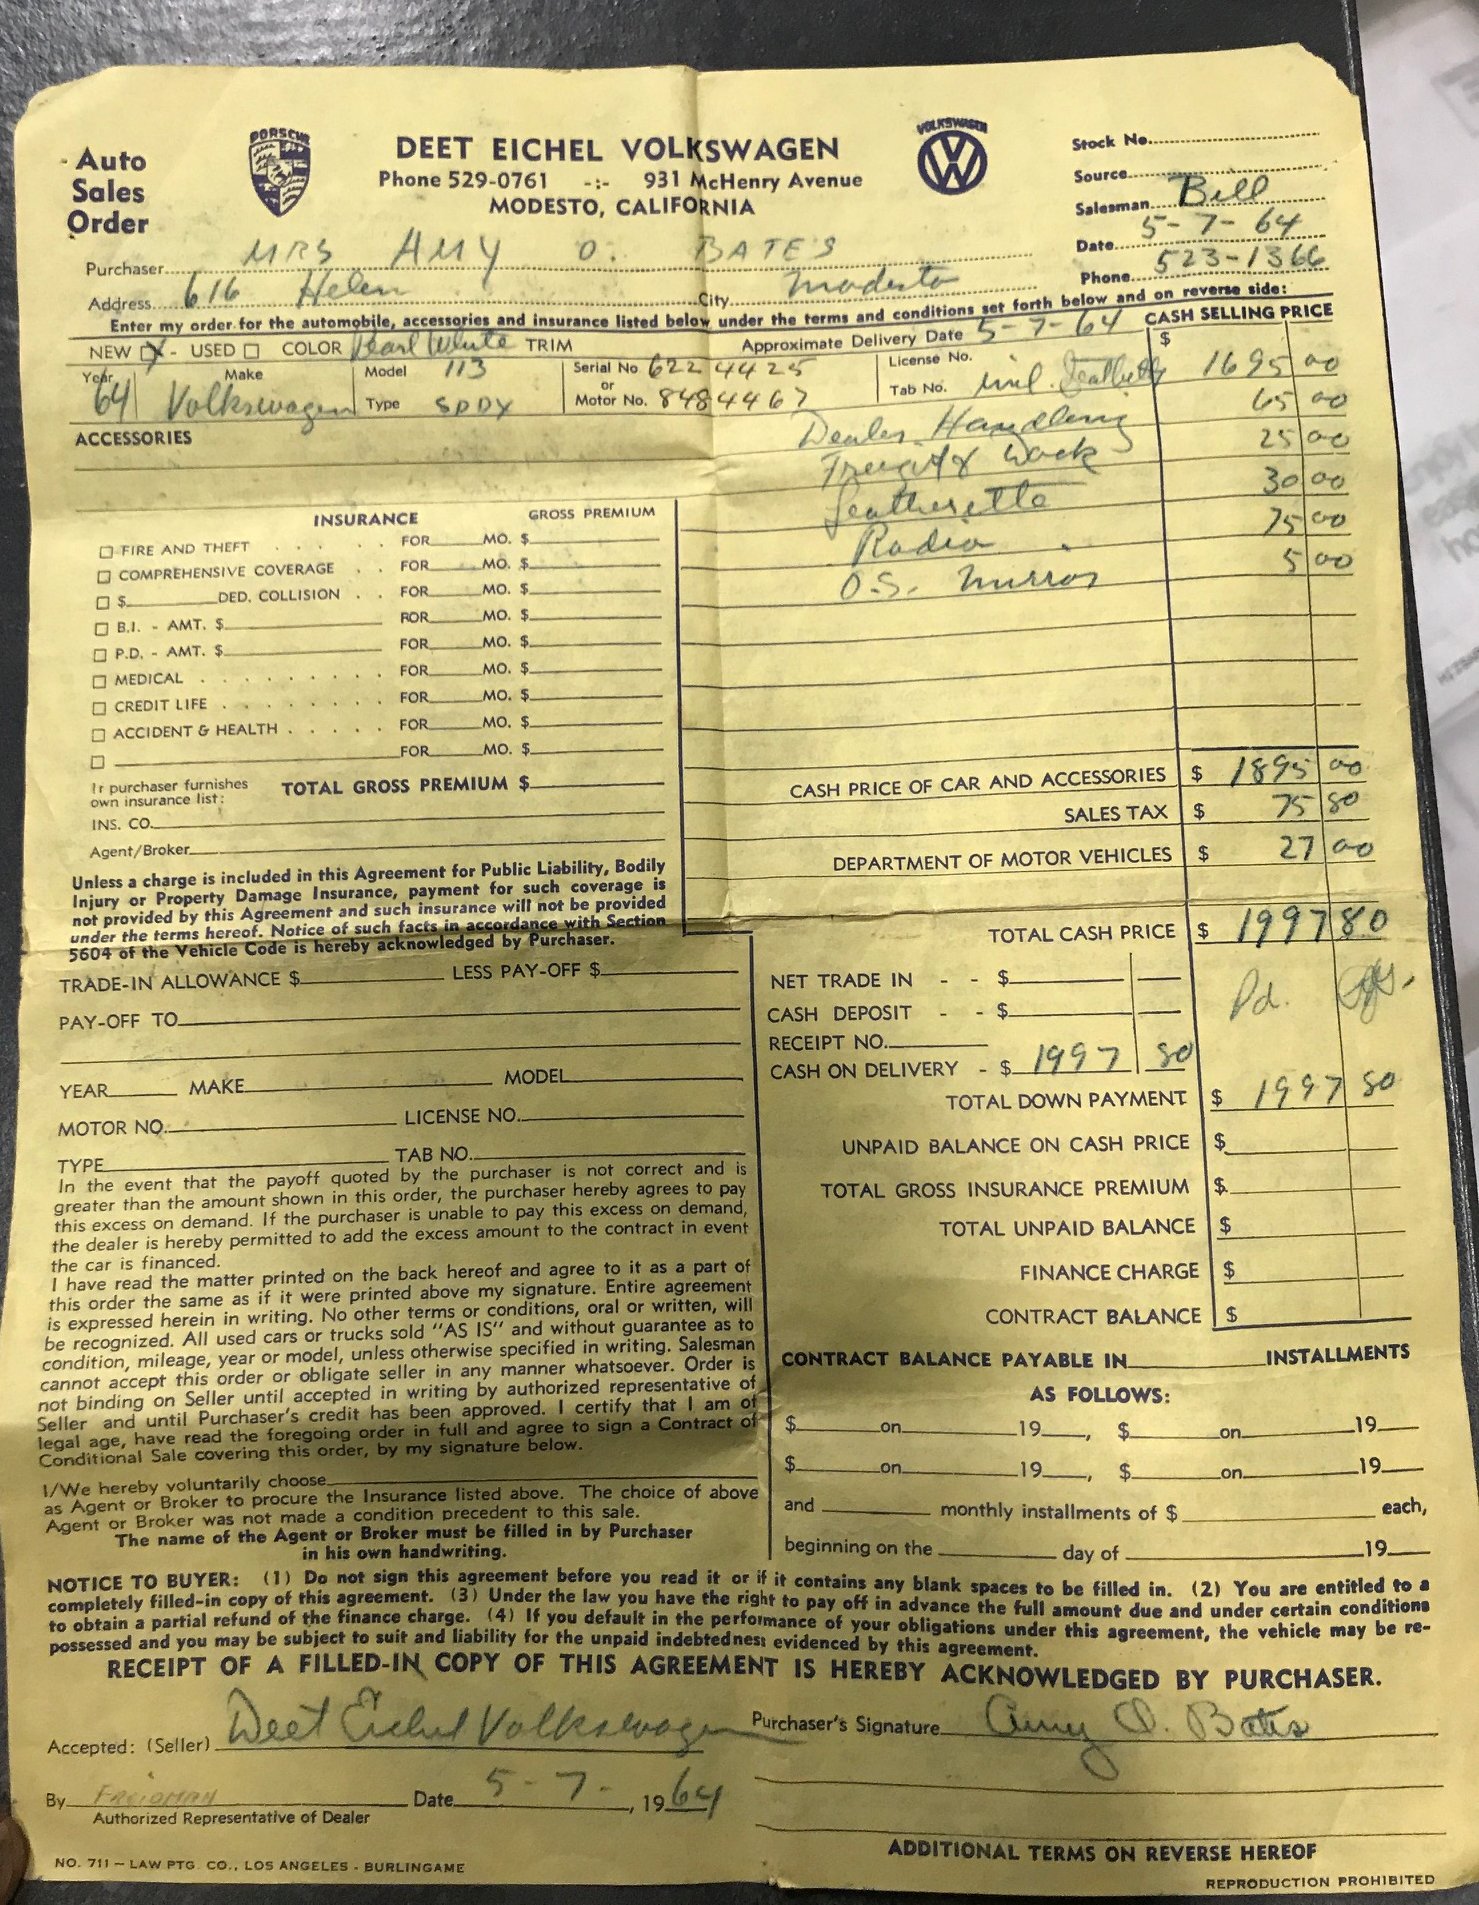 Auto
Sales
Order
PORSCHE
DEET EICHEL VOLKSWAGEN
Phone 529-0761 -:- 931 McHenry Avenue
MODESTO, CALIFORNIA
VOLKSWAGEN
Stock No.
Source
Salesman Bill
Date 5-7-64
Phone 523-1366
Purchaser MRS AMY O. BATES
Address 616 Helen City Modesto
Enter my order for the automobile, accessories and insurance listed below under the terms and conditions set forth below and on reverse side:
NEW X - USED COLOR Pearl White TRIM Approximate Delivery Date 5-7-64 CASH SELLING PRICE
Year 64 Make Volkswagen Model 113 Type SDDX Serial No 6224425 or Motor No. 8484467 License No. Tab No. incl. $ 1695 00
ACCESSORIES
Dealer Handling 65 00
Freight & Wock 25 00
Leatherette 30 00
Radio 75 00
O.S. Mirror 5 00
INSURANCE GROSS PREMIUM
FIRE AND THEFT . . . . . . FOR MO. $
COMPREHENSIVE COVERAGE . . FOR MO. $
$ DED. COLLISION . . FOR MO. $
B.I. - AMT. $ ROR MO. $
P.D. - AMT. $ FOR MO. $
MEDICAL . . . . . . . . . FOR MO. $
CREDIT LIFE . . . . . . . . FOR MO. $
ACCIDENT & HEALTH . . . . . FOR MO. $
FOR MO. $
If purchaser furnishes
own insurance list:
TOTAL GROSS PREMIUM $
INS. CO.
Agent/Broker
CASH PRICE OF CAR AND ACCESSORIES $ 1895 00
SALES TAX $ 75 80
DEPARTMENT OF MOTOR VEHICLES $ 27 00
Unless a charge is included in this Agreement for Public Liability, Bodily
Injury or Property Damage Insurance, payment for such coverage is
not provided by this Agreement and such insurance will not be provided
under the terms hereof. Notice of such facts in accordance with Section
5604 of the Vehicle Code is hereby acknowledged by Purchaser.
TOTAL CASH PRICE $ 1997 80
TRADE-IN ALLOWANCE $ LESS PAY-OFF $
PAY-OFF TO
YEAR MAKE MODEL
MOTOR NO. LICENSE NO.
TYPE TAB NO.
NET TRADE IN - - $
CASH DEPOSIT - - $
Pd.
RECEIPT NO.
CASH ON DELIVERY - $ 1997 80
TOTAL DOWN PAYMENT $ 1997 80
UNPAID BALANCE ON CASH PRICE $
TOTAL GROSS INSURANCE PREMIUM $
TOTAL UNPAID BALANCE $
FINANCE CHARGE $
CONTRACT BALANCE $
In the event that the payoff quoted by the purchaser is not correct and is
greater than the amount shown in this order, the purchaser hereby agrees to pay
this excess on demand. If the purchaser is unable to pay this excess on demand,
the dealer is hereby permitted to add the excess amount to the contract in event
the car is financed.
I have read the matter printed on the back hereof and agree to it as a part of
this order the same as if it were printed above my signature. Entire agreement
is expressed herein in writing. No other terms or conditions, oral or written, will
be recognized. All used cars or trucks sold "AS IS" and without guarantee as to
condition, mileage, year or model, unless otherwise specified in writing. Salesman
cannot accept this order or obligate seller in any manner whatsoever. Order is
not binding on Seller until accepted in writing by authorized representative of
Seller and until Purchaser's credit has been approved. I certify that I am of
legal age, have read the foregoing order in full and agree to sign a Contract of
Conditional Sale covering this order, by my signature below.
I/We hereby voluntarily choose
as Agent or Broker to procure the Insurance listed above. The choice of above
Agent or Broker was not made a condition precedent to this sale.
The name of the Agent or Broker must be filled in by Purchaser
in his own handwriting.
CONTRACT BALANCE PAYABLE IN INSTALLMENTS
AS FOLLOWS:
$ on 19 , $ on 19
$ on 19 , $ on 19
and monthly installments of $ each,
beginning on the day of 19
NOTICE TO BUYER: (1) Do not sign this agreement before you read it or if it contains any blank spaces to be filled in. (2) You are entitled to a
completely filled-in copy of this agreement. (3) Under the law you have the right to pay off in advance the full amount due and under certain conditions
to obtain a partial refund of the finance charge. (4) If you default in the performance of your obligations under this agreement, the vehicle may be re-
possessed and you may be subject to suit and liability for the unpaid indebtedness evidenced by this agreement.
RECEIPT OF A FILLED-IN COPY OF THIS AGREEMENT IS HEREBY ACKNOWLEDGED BY PURCHASER.
Accepted: (Seller) Deet Eichel Volkswagen Purchaser's Signature Amy O. Bates
By Date 5-7-, 1964
Authorized Representative of Dealer
ADDITIONAL TERMS ON REVERSE HEREOF
NO. 711 – LAW PTG. CO., LOS ANGELES - BURLINGAME
REPRODUCTION PROHIBITED